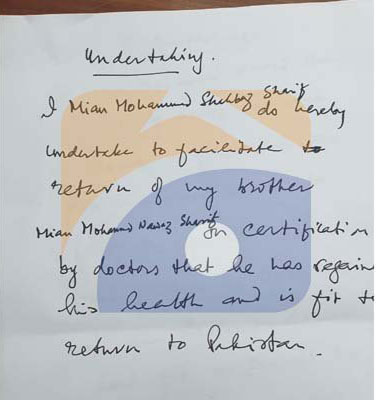 Undertaking.
I Mian Mohammad Shehbaz Sharif
do hereby
undertake to facilitate
return of my brother
Mian Mohammad Nawaz Sharif on certification
by doctors that he has regain
his health and is fit to
return to Pakistan.